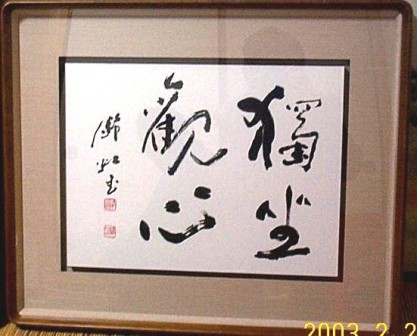 獨坐
觀心
2003 2 2